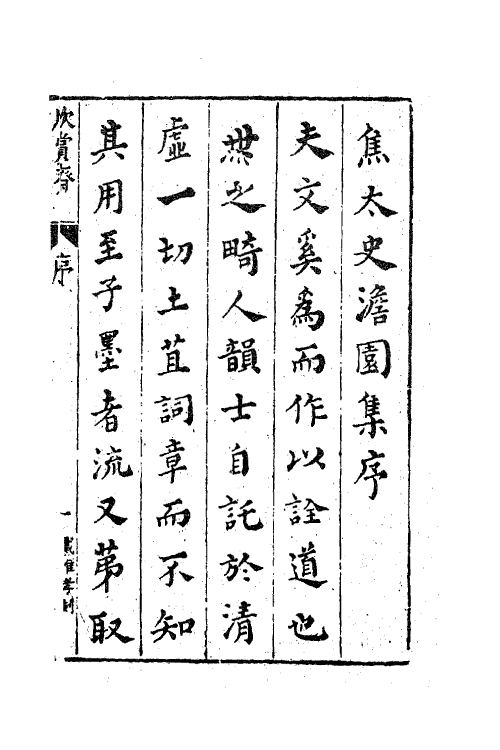 焦太史澹園集序
夫文奚為而作以詮道也
無之畸人韻士自託於清
虛一切土苴詞章而不知
其用至子墨者流又第取
欣賞齋
序
一